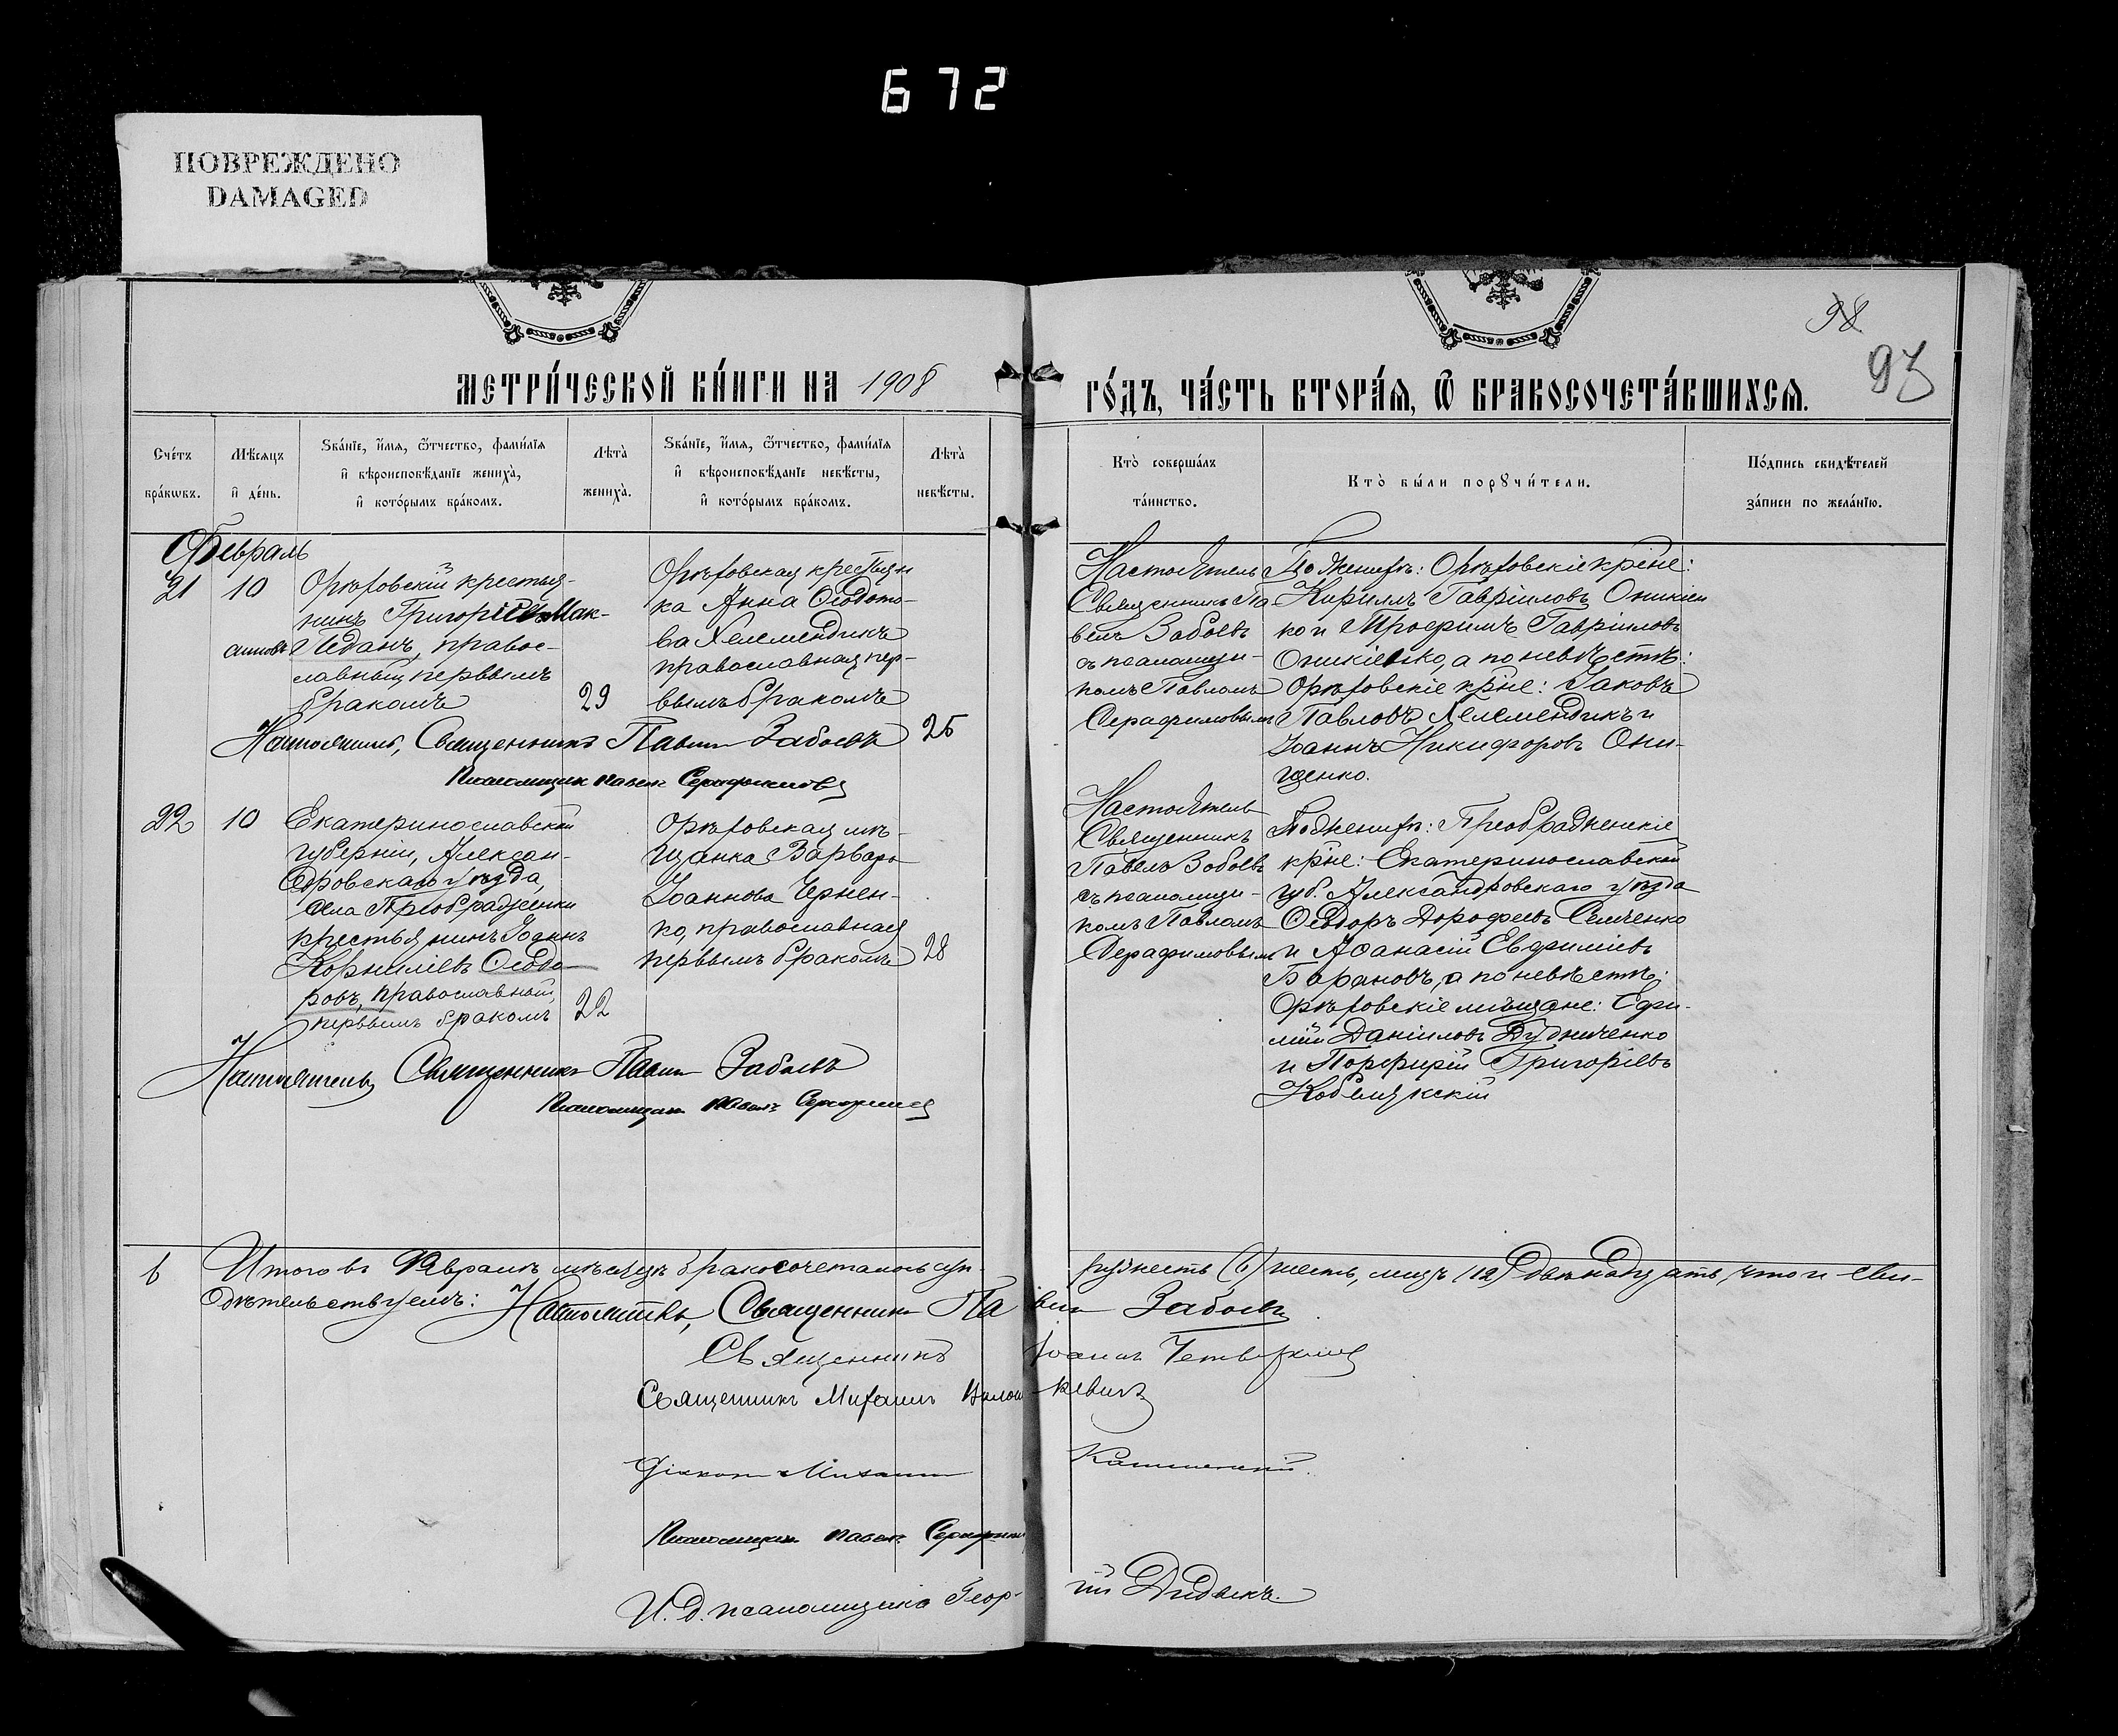 672
ПОВРЕЖДЕНО
DAMAGED
98
93
МЕТРИ́ЧЕСКОЙ КНИ́ГИ НА 1908
ГО́ДЪ, ЧА́СТЬ ВТОРА́Я, Ѿ БРАКОСОЧЕТА́ВШИХСЯ.
Сче́тъ
бра́кѡвъ.
Мѣ́сяцъ
и҆ де́нь.
Зва́нїе, и҆́мя, ѻ҆́тчество, фами́лїя
и҆ вѣроисповѣ́данїе жениха̀,
и҆ кото́рымъ бра́комъ.
Лѣта̀
жениха̀.
Зва́нїе, и҆́мя, ѻ҆́тчество, фами́лїя
и҆ вѣроисповѣ́данїе невѣ́сты,
и҆ кото́рымъ бра́комъ.
Лѣта̀
невѣ́сты.
Кто̀ соверша́лъ
та́инство.
Кто̀ бы́ли порꙋчи́тели.
По́дпись свидѣ́телей
за́писи по жела́нїю.
Февраль
21
10
Орѣховскій крестья-
нинъ Григорій Мак-
симовъ Педанъ, правос-
лавный, первымъ
бракомъ
29
Орѣховская крестьян
ка Анна Ѳеодото-
ва Хелемендикъ
православная пер-
вымъ бракомъ
25
Настоятель
Священникъ Па-
велъ Забоевъ
съ псаломщи-
комъ Павломъ
Серафимовымъ
По женихѣ: Орѣховскіе кр̃не:
Кириллъ Гавріиловъ Оникіен
ко и Трофимъ Гавріиловъ
Оникіенко, а по невѣстѣ:
Орѣховскіе кр̃не: Іаковъ
Павловъ Хелемендикъ и
Іоаннъ Никифоровъ Они-
щенко.
Настоятель, Священникъ Павелъ Забоевъ
Псаломщикъ Павелъ Серафимовъ
22
10
Екатеринославской
губерніи, Алексан-
дровскаго уѣзда,
села Преображенки
крестьянинъ Іоаннъ
Корниліевъ Ѳеодо-
ровъ, православный,
первымъ бракомъ
22
Орѣховская мѣ-
щанка Варвара
Іоаннова Чернен-
ко, православная
первымъ бракомъ
28
Настоятель
Священникъ
Павелъ Забоевъ
съ псаломщи-
комъ Павломъ
Серафимовымъ
По женихѣ: Преображенскіе
кр̃не: Екатеринославской
губ. Александровскаго уѣзда
Ѳеодоръ Дороѳеевъ Семченко
и Аѳанасій Евфиміевъ
Барановъ, а по невѣстѣ:
Орѣховскіе мѣщане: Ефи-
мій Даніиловъ Дудниченко
и Порфирій Григоріевъ
Кобеляцкій
Настоятель Священникъ Павелъ Забоевъ
Псаломщикъ Павелъ Серафимовъ
6
Итого въ Февралѣ мѣсяцѣ бракосочеталось суп-
ружествъ (6) шесть, лицъ (12) двѣнадцать, что и сви-
дѣтельствуемъ: Настоятель, Священникъ Павелъ Забоевъ
Священникъ Іоаннъ
Священникъ Михаилъ
Діаконъ Михаилъ
Псаломщикъ Павелъ Серафимовъ
И. д. псаломщика Георгій Дидыкъ.